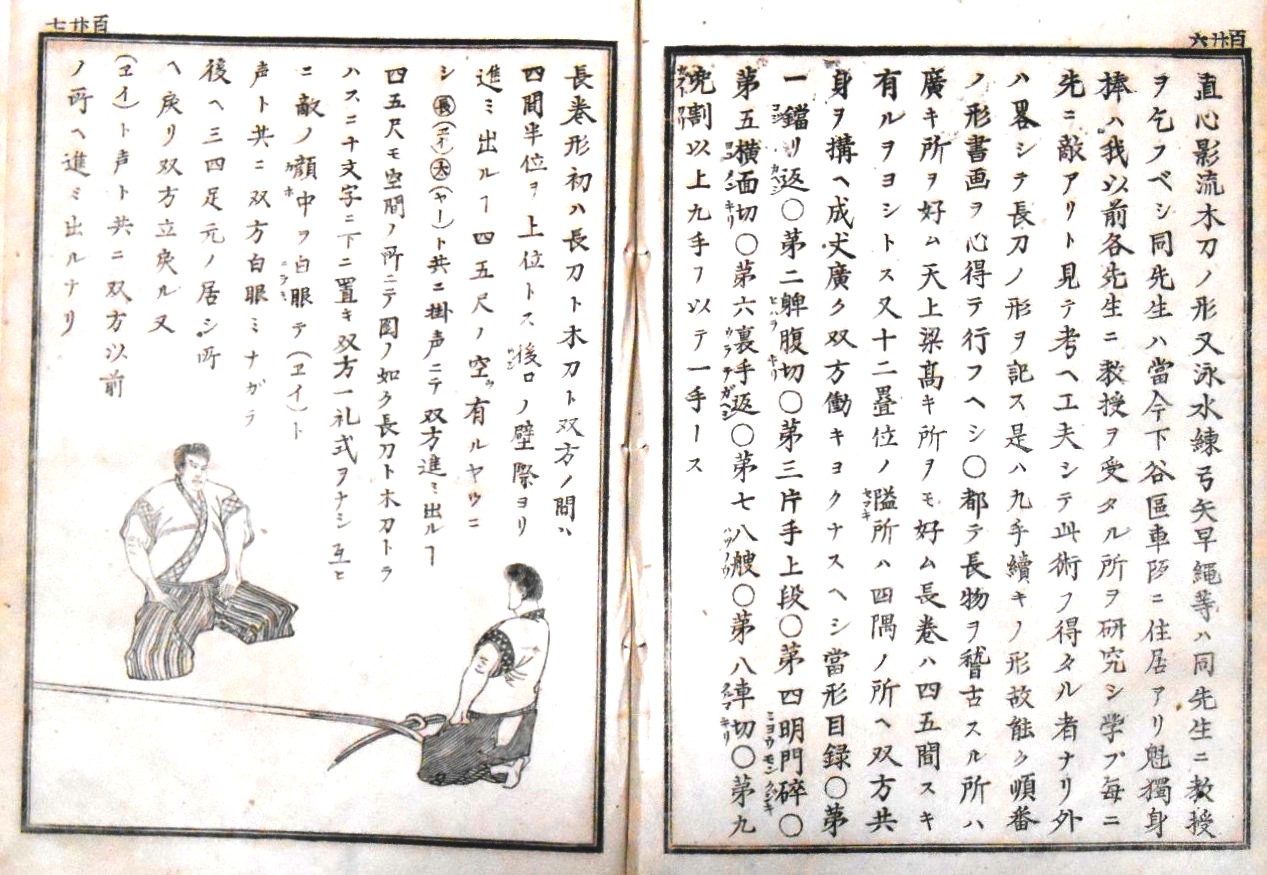 百廿六
直心影流木刀ノ形又泳水練弓矢早縄等ハ同先生ニ教授
ヲ乞フベシ同先生ハ當今下谷區車阪ニ住居アリ魁獨身
捧ハ我以前各先生ニ教授ヲ受タル所ヲ研究シ学プ毎ニ
先ニ敵アリト見テ考ヘ工夫シテ此術フ得タル者ナリ外
ハ畧シテ長刀ノ形ヲ記ス是ハ九手續キノ形故能ク順番
ノ形書画ヲ心得テ行フヘシ〇都テ長物ヲ稽古スル所ハ
廣キ所ヲ好ム天上梁高キ所ヲモ好ム長巻ハ四五間スキ
有ルヲヨシトス又十二畳位ノ隘所ハ四隅ノ所ヘ双方共
身ヲ搆ヘ成丈廣ク双方働キヨクナスヘシ當形目録〇第
一鐺リ返〇第二髀腹切〇第三片手上段〇第四明門碎〇
第五横面切〇第六裏手返〇第七八艘〇第八車切〇第九
兜割以上九手フ以テ一手ース
百廿七
長巻形初ハ長刀ト木刀ト双方ノ間ハ
四間半位ヲ上位トス後ロノ壁際ヨリ
進ミ出ルヿ四五尺ノ空有ルヤウニ
シ㊀長(ヱイ)太(ヤー)ト共ニ掛声ニテ双方進ミ出ルヿ
四五尺モ空間ノ所ニテ圖ノ如ク長刀ト木刀トラ
ハスニ十文字ニ下ニ置キ双方一礼式ヲナシ互ヒ
ニ敵ノ顔中ヲ白眼テ(ヱイ)ト
声ト共ニ双方白眼ミナガラ
後ヘ三四足元ノ居シ所
ヘ戻リ双方立戻ル又
(ヱイ)ト声ト共ニ双方以前
ノ所ヘ進ミ出ルナリ